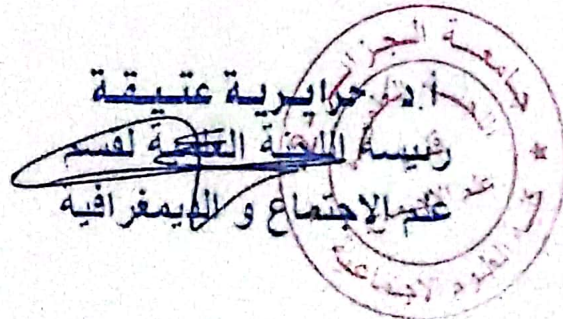 أ.د. حرايرية عتيقة
رئيسة اللجنة العلمية لقسم
علم الاجتماع و الديمغرافية
جامعة الجزائر
العلوم الاجتماعية